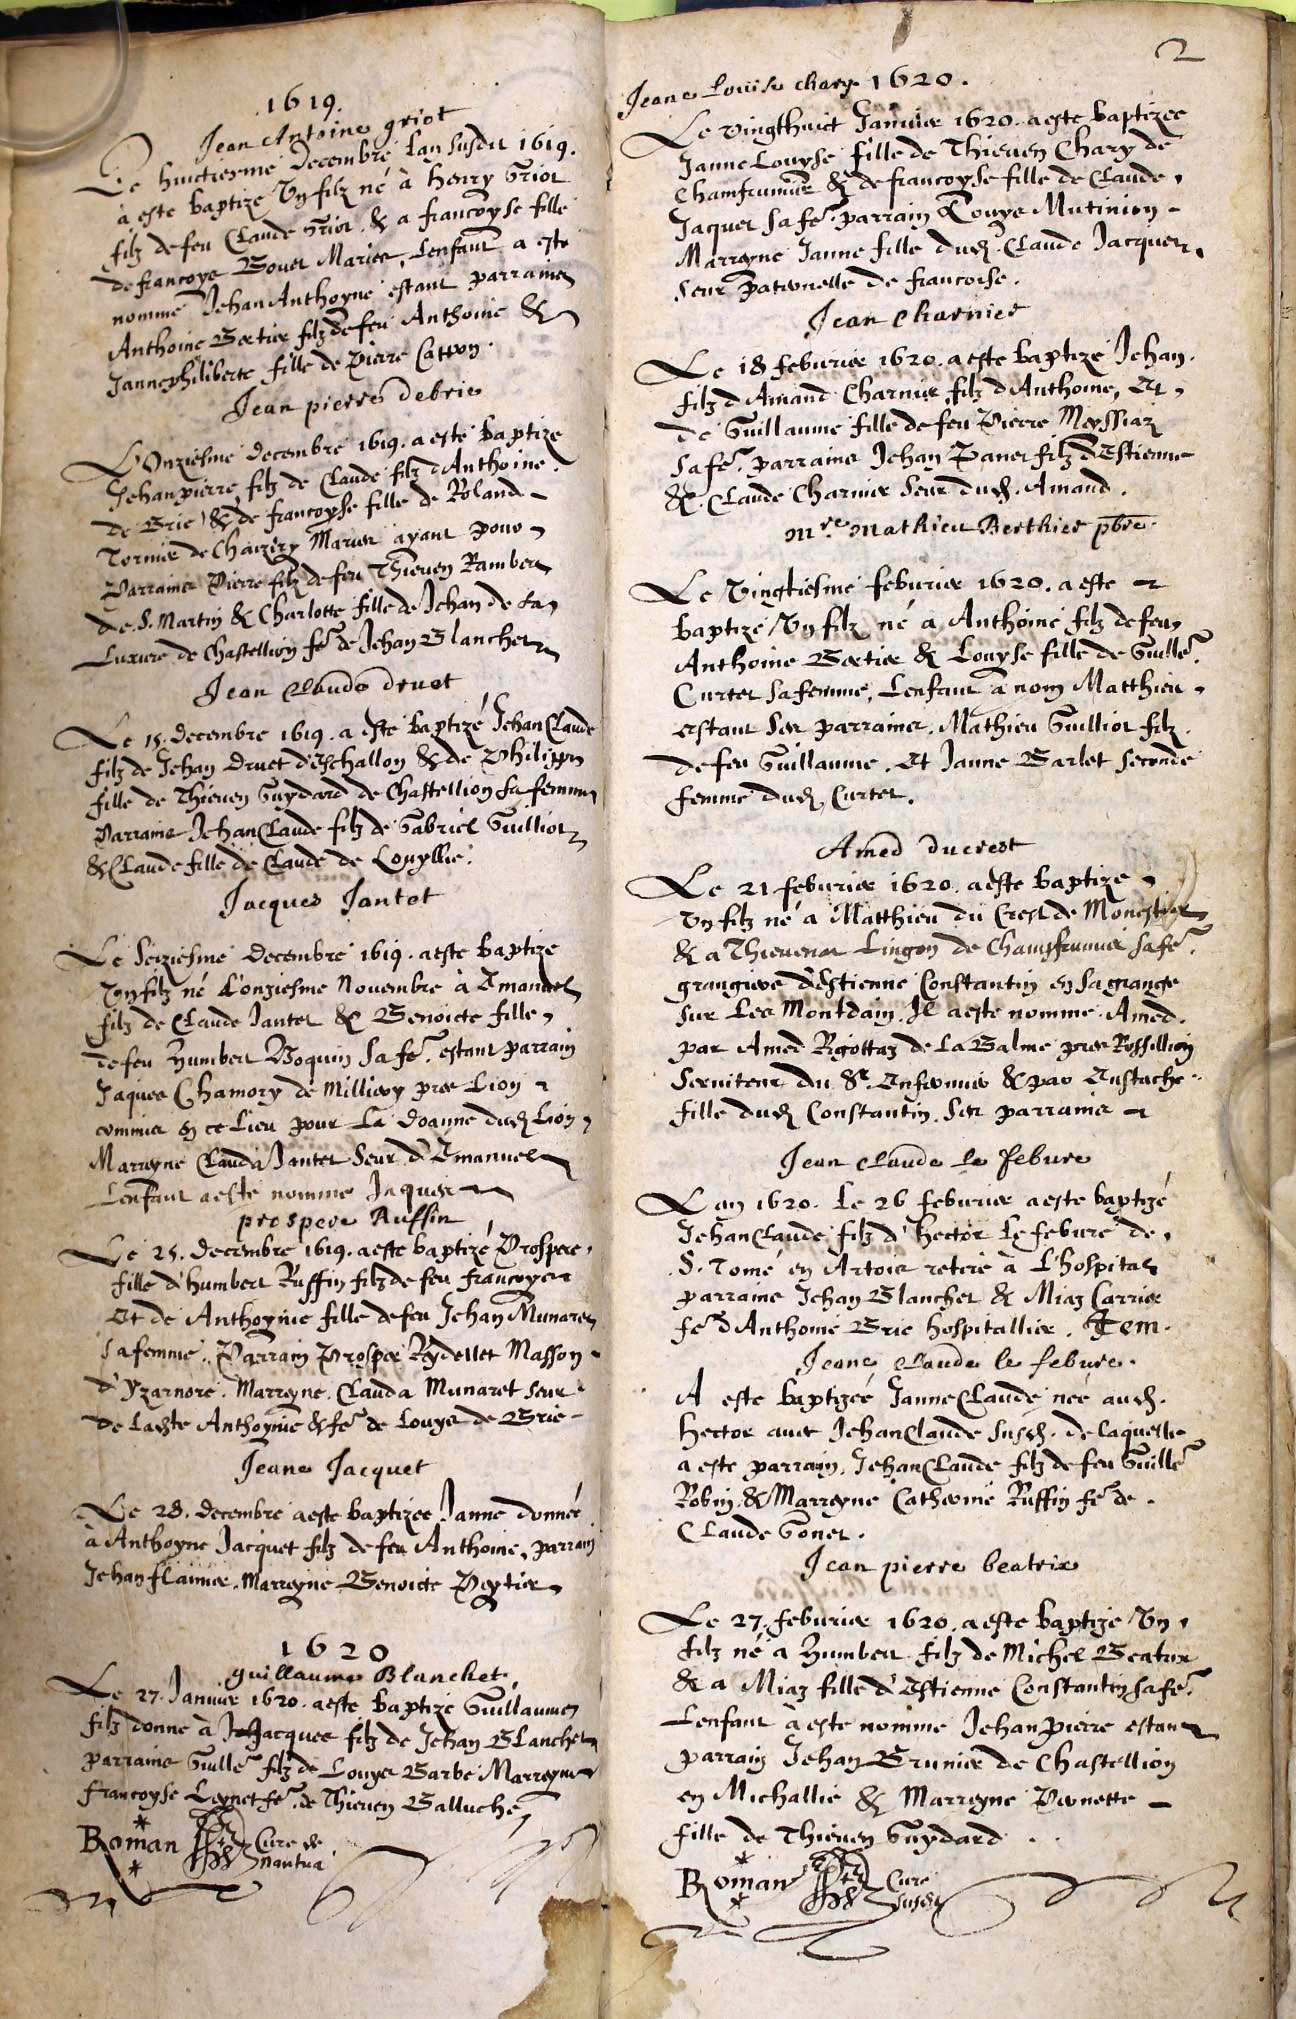 1619.
Jean Antoine griot
Le huictiesme Decembre Lan susdit 1619.
à este baptize Un filz né à Henry Griot
filz de feu Claude Griot & a francoyse fille
de francoys Bouet Mariez, Lenfant a este
nommé Jehan Anthoyne estant parrains
Anthoine Bertier filz de feu Anthoine &
Janne philiberte fille de Pierre Catton.
Jean pierre debrie
L'Onziesme decembre 1619. a esté baptize
Jehan pierre filz de Claude filz d'Anthoine
de Brie & de francoyse fille de Roland
Tornier de Chaizery Mariez ayant pour
Parrains Pierre filz de feu Thieven Rambert
de S. Martin & Charlotte fille de Jehan de La
Luxure de Chastellion fe. de Jehan Blanchet
Jean Claude druet
Le 15. decembre 1619. a este baptizé Jehan Claude
filz de Jehan Druet d'Eschallon & de Philippa
fille de Thieven Guydard de Chastellion sa femme
Parrains Jehan Claude filz de Gabriel Guilliot
& Claude fille de Claude de Louyllie.
Jacques Jantet
Le Seiziesme decembre 1619. a este baptize
Un filz né L'onziesme Novembre à Emanuel
filz de Claude Jantet & Benoicte fille
de feu Humbert Boquin sa fe. estant parrain
Jaques Chamory de Millery pres Lion
commis en ce Lieu pour La doanne dud. Lion
Marreyne Clauda Jantet Seur d'Emanuel
Lenfant a este nomme Jaques
prospere Ruffin
Le 25. decembre 1619. a este baptizé Prospere
fille d'humbert Ruffin filz de feu francoys
Et de Anthoynie fille de feu Jehan Munaret
sa femme. Parrain Prosper Reydellet Masson
d'Yzarnore. Marreyne. Clauda Munaret seur
de Ladite Anthoynie & fe. de Louys de Brie
Jeane Jacquet
Le 28. decembre a este baptizee Janne donnée
à Anthoyne Jacquet filz de feu Anthoine, parrain
Jehan flamier. Marreyne Benoicte Peytier
1620
guillaume Blanchet
Le 27. Janvier 1620. a este baptize Guillaume
filz donne à Jacques filz de Jehan Blanchet
parrains Guille. filz de Louys Barbe Marreyne
francoyse Leynet fe. de Thieven Balluche
Roman Cure de
Nantua
2
Jeane Louise chary 1620.
Le vingthuict Janvier 1620. a este baptizee
Janne Louyse fille de Thieven Chary de
Chamfrumier & de francoyse fille de Claude
Jaquet sa fe. parrain Louys Mutinion
Marreyne Janne fille dud. Claude Jacquet
seur paternelle de francoise.
Jean charnier
Le 18 febvrier 1620. a este baptize Jehan.
filz d'Amand Charnier filz d'Anthoine, Et
de Guillauma fille de feu Pierre Meyssiaz
sa fe. parrains Jehan Panet filz d'Estienne
& Claude Charnier seur dud. Amand.
mre. mathieu Berthier pbre.
Le Vingtiesme febvrier 1620. a este
baptizé Un filz né à Anthoine filz de feu
Anthoine Bertier & Louyse fille de Guille.
Curtet sa femme, Lenfant a nom Matthieu
estant ses parrains. Mathieu Guilliot filz
de feu Guillaume. Et Janne Barlet seconde
femme dud. Curtet.
Amed ducrest
Le 21 febvrier 1620. a este baptize
Un filz né à Matthieu du Crest de Monestier
& a Thievena Lingon de Champfrumier sa fe.
grangiers d'Estienne Constantin en sa grange
sur Les Montdain. Il a este nomme Amed.
par Amed Rigottaz de La Balme pres Rossillion
Serviteur du Sr. Enfernier & par Eustache
fille dud. Constantin. ses parrains
Jean claude le febure
Lan 1620. Le 26 febvrier a este baptizé
Jehan Claude filz d'hector Le febvre de
S. Tomé en Artois retiré à L'hospital
parrains Jehan Blanchet & Miaz Carrier
fe. d'Anthoine Brie hospitallier. Item.
Jeane claude le febure.
A este baptizéé Janne Claude née aud.
hector avec Jehan Claude susd. de laquelle
a este parrain. Jehan Claude filz de feu Guille.
Robin & Marreyne Catherine Ruffin fe. de
Claude Gonet.
Jean pierre beatrix
Le 27. febvrier 1620. a este baptize Un
filz né a Humbert filz de Michel Beatrix
& a Miaz fille d'Estienne Constantin sa fe.
Lenfant à este nomme Jehan Pierre estant
parrain Jehan Brunier de Chastellion
en Michallie & Marreyne Pernette
fille de Thieven Guydard
Roman Cure
susdit